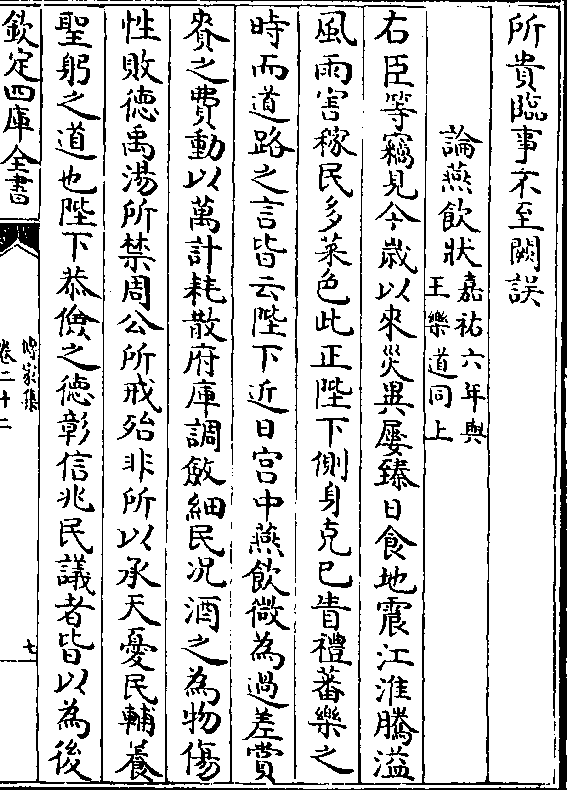 所貴臨事不至闕誤
論燕飲狀嘉祐六年與
王樂道同上
右臣等竊見今歲以來災異屢臻日食地震江淮騰溢
風雨害稼民多菜色此正陛下側身克己眚禮蕃樂之
時而道路之言皆云陛下近日宮中燕飲微為過差賞
賚之費動以萬計耗散府庫調斂細民況酒之為物傷
性敗德禹湯所禁周公所戒殆非所以承天憂民輔養
聖躬之道也陛下恭儉之德彰信兆民議者皆以為後
欽定四庫全書
傳家集
卷二十二
七